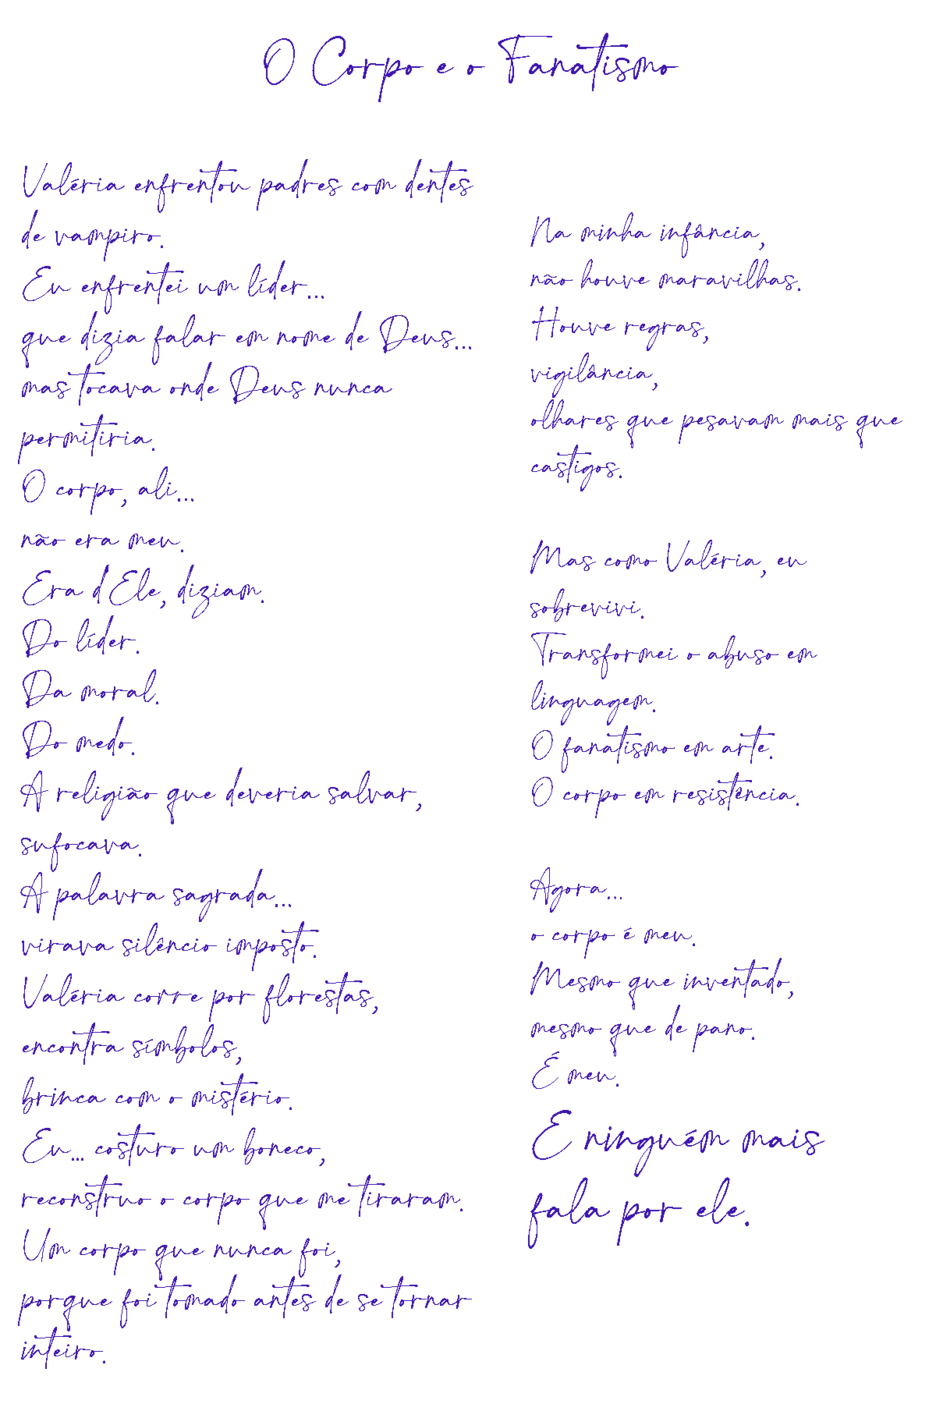 O Corpo e o Fanatismo
Valéria enfrentou padres com dentes
de vampiro.
Eu enfrentei um líder...
que dizia falar em nome de Deus...
mas tocava onde Deus nunca
permitiria.
O corpo, ali...
não era meu.
Era d'Ele, diziam.
Do líder.
Da moral.
Do medo.
A religião que deveria salvar,
sufocava.
A palavra sagrada...
virava silêncio imposto.
Valéria corre por florestas,
encontra símbolos,
brinca com o mistério.
Eu... costuro um boneco,
reconstruo o corpo que me tiraram.
Um corpo que nunca foi,
porque foi tomado antes de se tornar
inteiro.
Na minha infância,
não houve maravilhas.
Houve regras,
vigilância,
olhares que pesavam mais que
castigos.
Mas como Valéria, eu
sobrevivi.
Transformei o abuso em
linguagem.
O fanatismo em arte.
O corpo em resistência.
Agora...
o corpo é meu.
Mesmo que inventado,
mesmo que de pano.
É meu.
E ninguém mais
fala por ele.